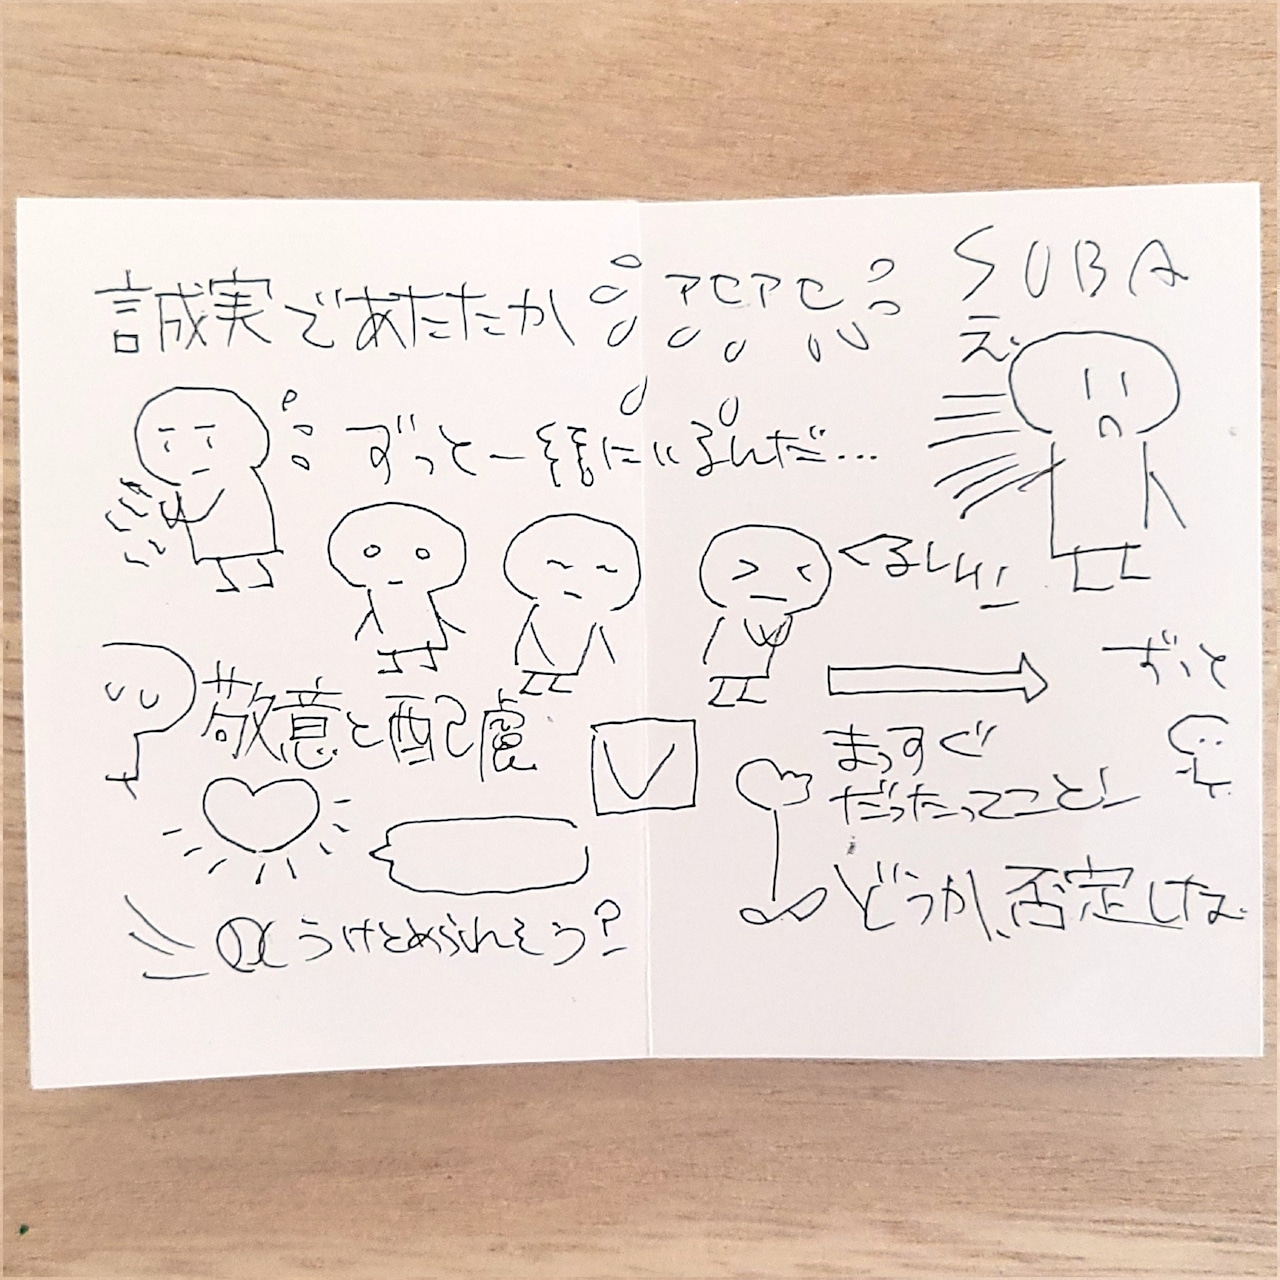 誠実であたたか
アセアセ
SUBA
え、
ずっと一緒にいるんだ…
くるしい!
ずっと
敬意と配慮
まっすぐ
だったってこと!
どうか、否定しな
うけとめられそう?